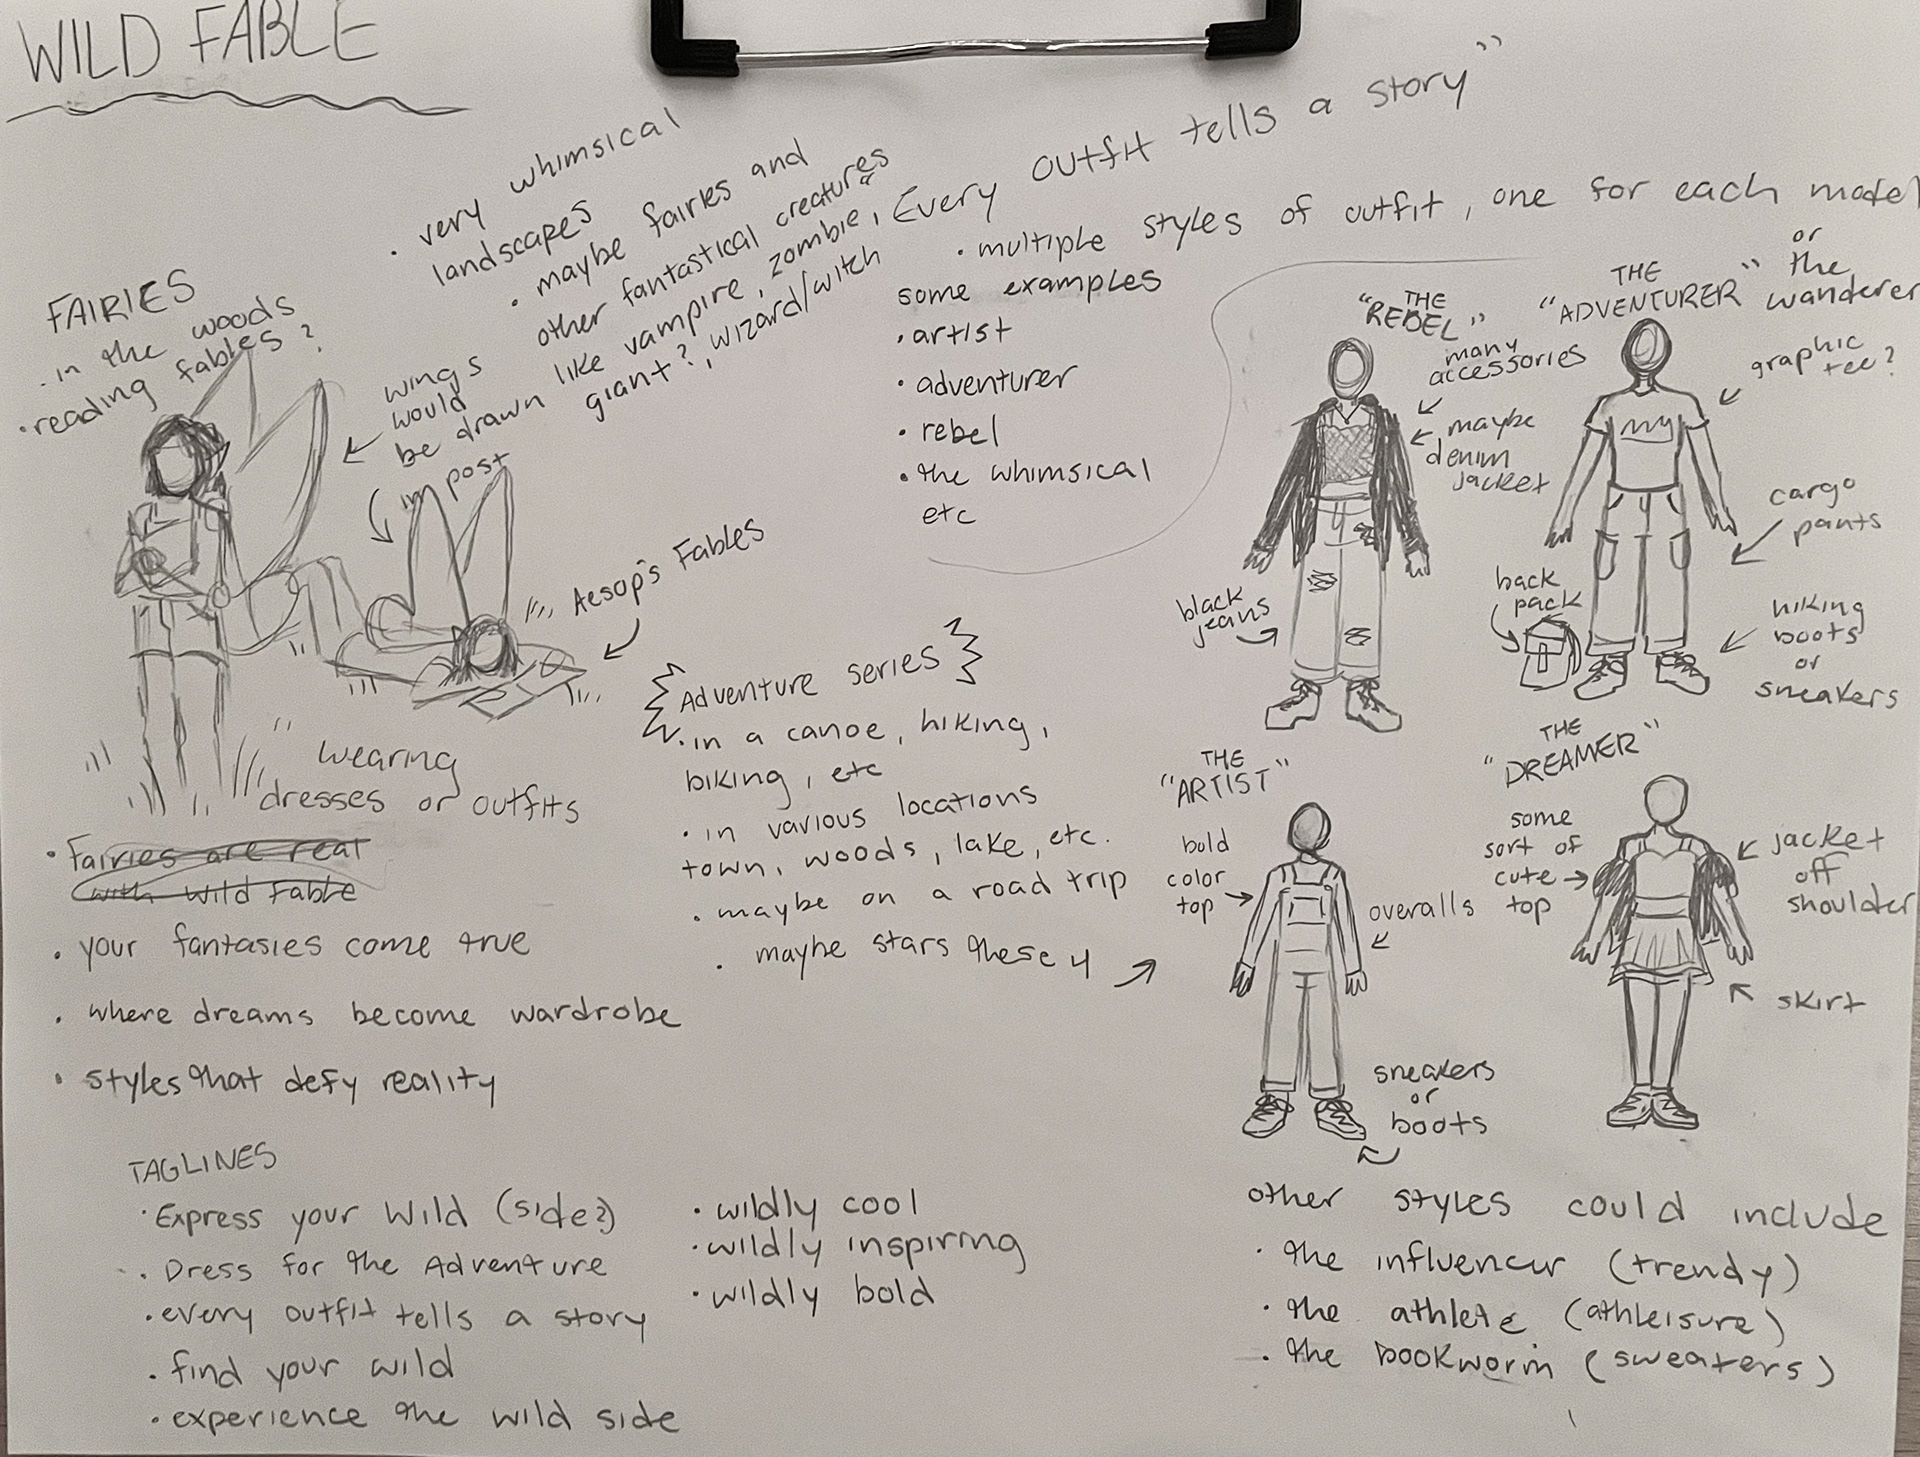 WILD FABLE
• very whimsical
landscapes
• maybe fairies and
other fantastical creatures
like vampire, zombie,
giant?, wizard/witch
"Every outfit tells a story"
• multiple styles of outfit, one for each model
some examples
• artist
• adventurer
• rebel
• the whimsical
etc
FAIRIES
• in the woods
• reading fables?
wings
would
be drawn
in post
Aesop's Fables
wearing
dresses or outfits
• Fairies are real
with Wild Fable
• your fantasies come true
• where dreams become wardrobe
• styles that defy reality
Adventure series
• in a canoe, hiking,
biking, etc
• in various locations
town, woods, lake, etc.
• maybe on a road trip
• maybe stars these 4
THE
"REBEL"
many
accessories
maybe
denim
jacket
black
jeans
THE
"ADVENTURER"
or
the
wanderer
graphic
tee?
cargo
pants
back
pack
hiking
boots
or
sneakers
THE
"ARTIST"
bold
color
top
overalls
sneakers
or
boots
THE
"DREAMER"
some
sort of
cute
top
jacket
off
shoulder
skirt
TAGLINES
• Express your Wild (side?)
• Dress for the Adventure
• every outfit tells a story
• find your wild
• experience the wild side
• wildly cool
• wildly inspiring
• wildly bold
other styles could include
• the influencer (trendy)
• the athlete (athleisure)
• the bookworm (sweaters)